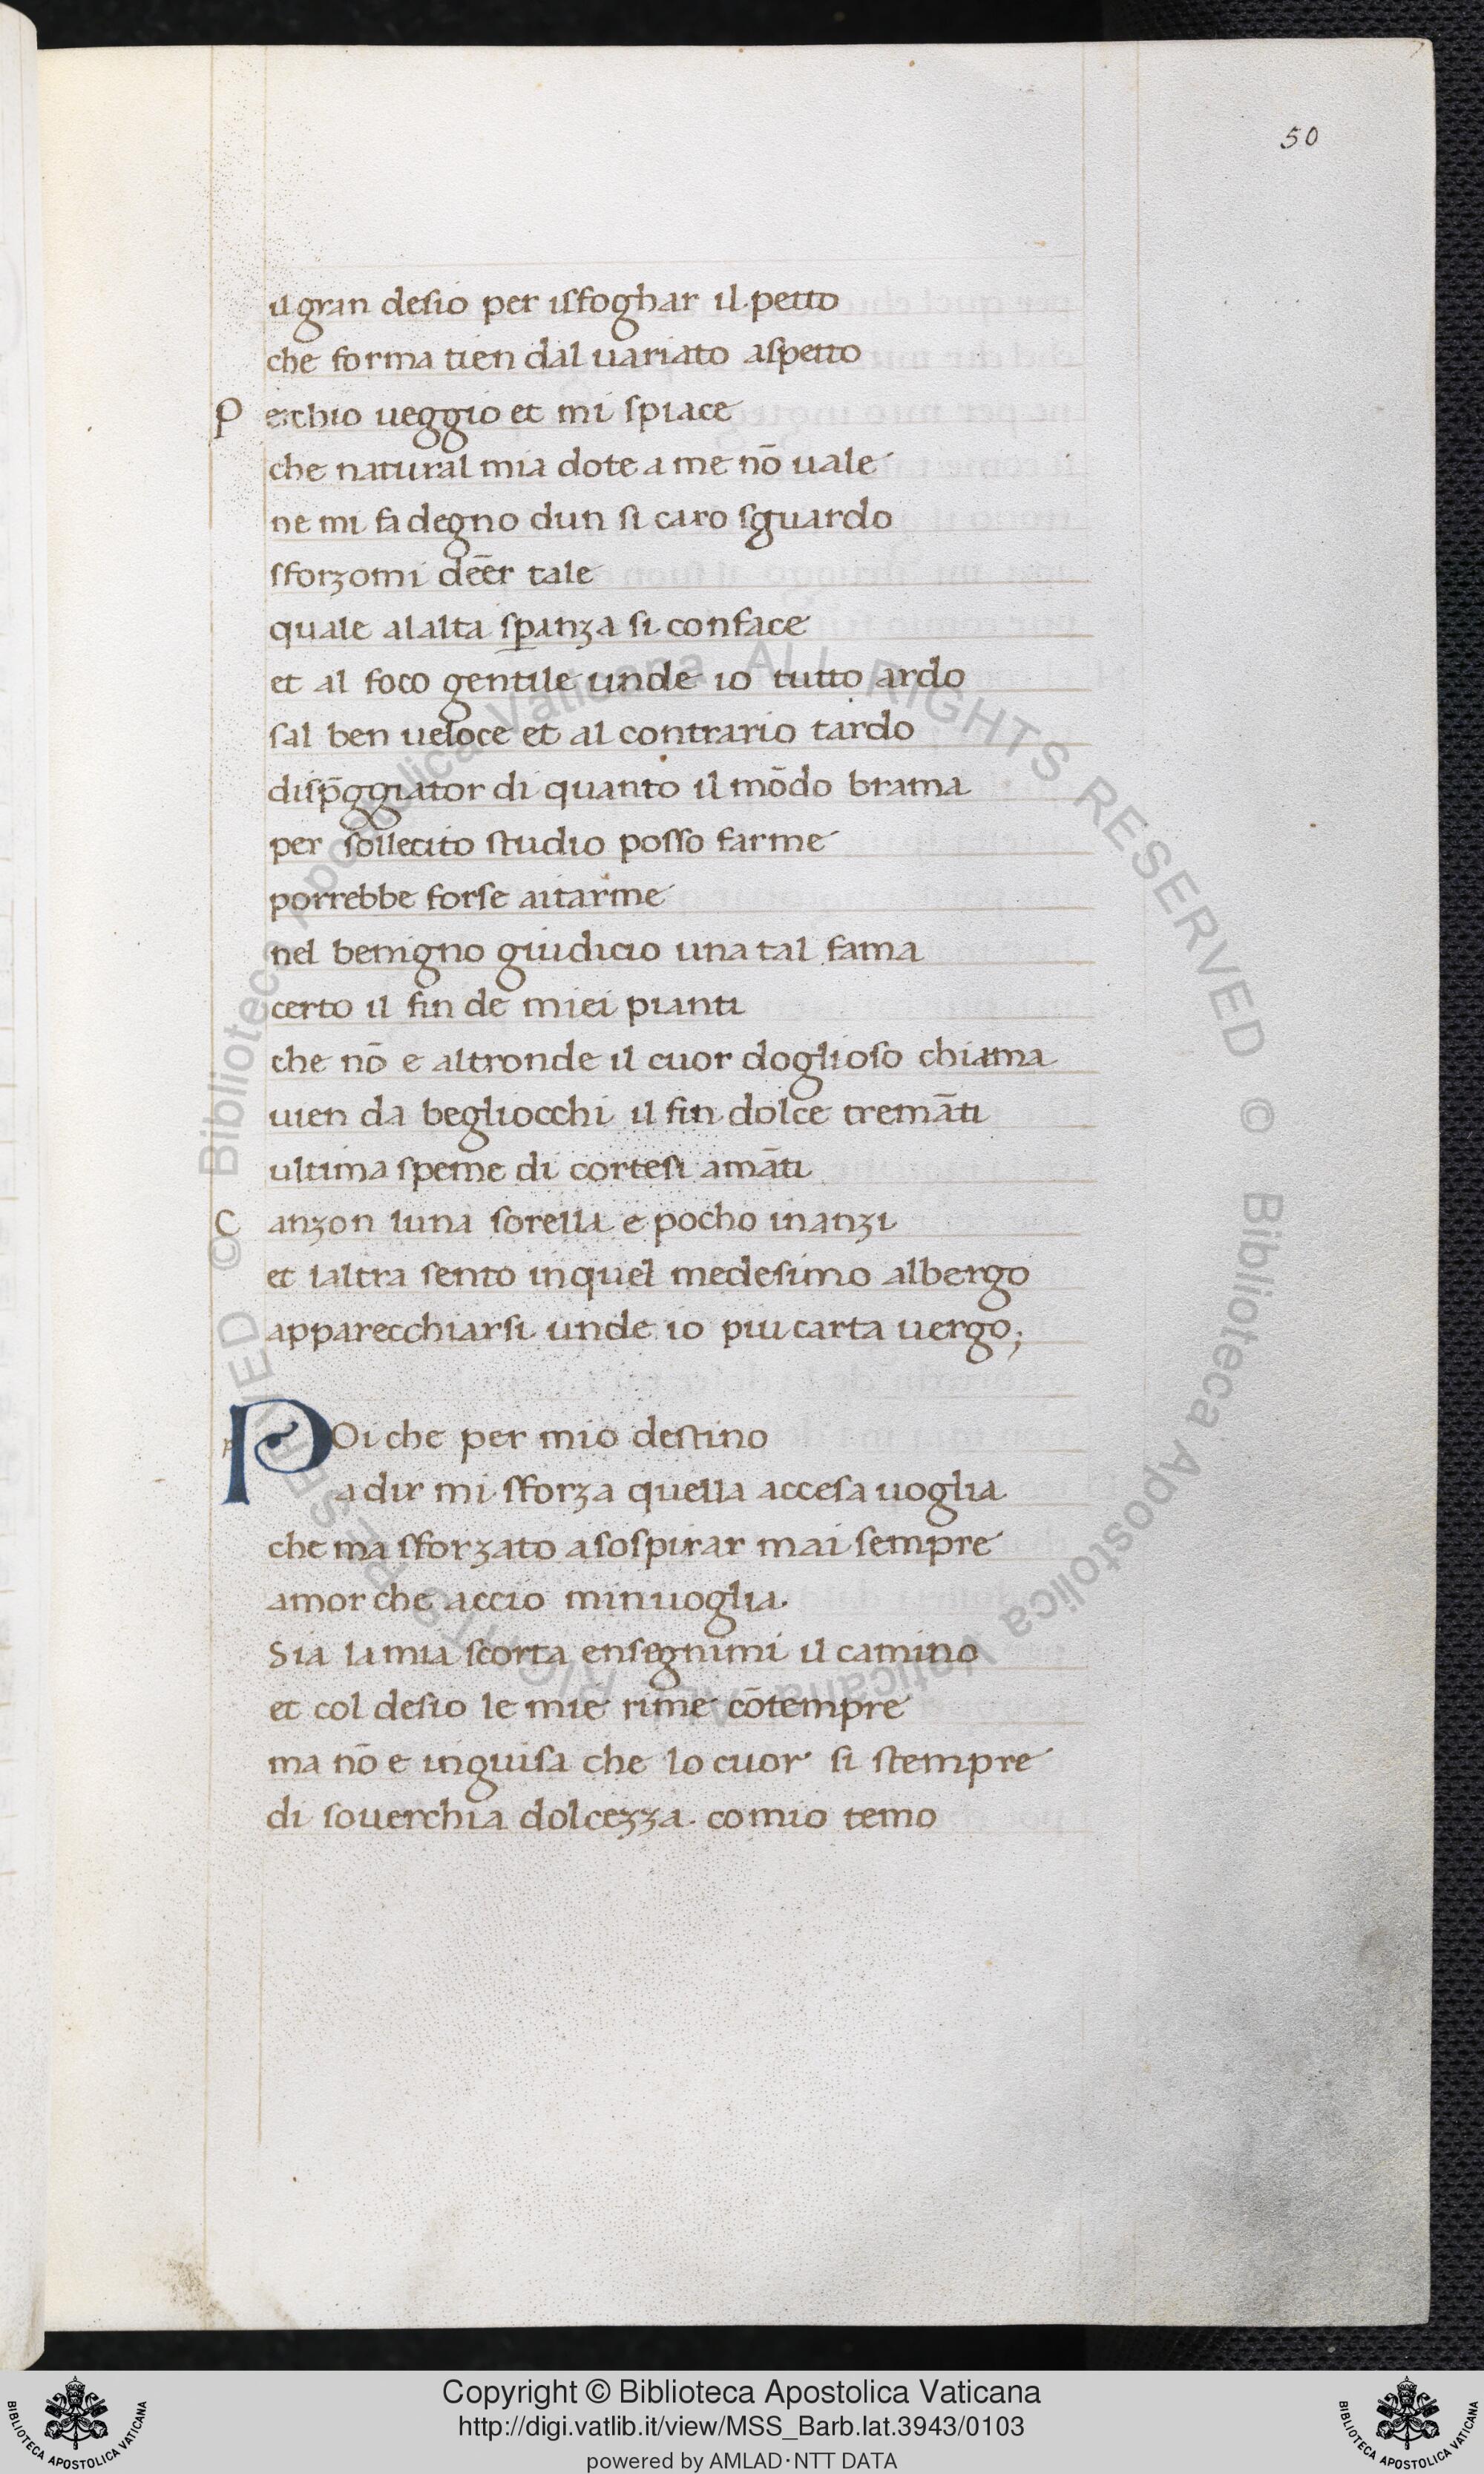 50
il gran desio per isfoghar il petto
che forma tien dal uariato aspetto
P erchio ueggio et mi spiace
che natural mia dote a me nō uale
ne mi fa degno dun si caro sguardo
sforzomi deēr tale
quale alalta sꝑanza si conface
et al foco gentile unde io tutto ardo
sal ben ueloce et al contrario tardo
disp̄ggiator di quanto il mōdo brama
per sollecito studio posso farme
porrebbe forse aitarme
nel benigno giudicio una tal fama
certo il fin de miei pianti
che nō e altronde il cuor doglioso chiama
uien da begliocchi il fin dolce tremāti
ultima speme di cortesi amāti
C anzon luna sorella e pocho inanzi
et laltra sento inquel medesimo albergo
apparecchiarsi unde io piu carta uergo;
POi che per mio destino
a dir mi sforza quella accesa uoglia
che ma sforzato a sospirar mai sempre
amor che accio minuoglia
Sia la mia scorta ensegnimi il camino
et col desio le mie rime cōtempre
ma nō e inguisa che lo cuor si stempre
di souerchia dolcezza. comio temo
© Biblioteca Apostolica Vaticana ALL RIGHTS RESERVED © Biblioteca Apostolica Vaticana ALL RIGHTS RESERVED
Copyright © Biblioteca Apostolica Vaticana
http://digi.vatlib.it/view/MSS_Barb.lat.3943/0103
powered by AMLAD·NTT DATA
BIBLIOTECA APOSTOLICA VATICANA
BIBLIOTECA APOSTOLICA VATICANA